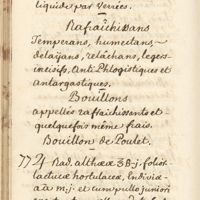 liquide par Verrées.
Rafraîchissans
Temperans, humectans,
delaijans, relâchans, leges
incisifs, Anti Phlogistiques et
antargastiques.
Bouillons
appellés rafraichissents et
quelquefois même frais.
Bouillon de Poulet.
774 Rad. altheæ ℥β. j. folior
lactucæ hortulaceæ, Endiviæ
aa m.j. et cum pullo juniori